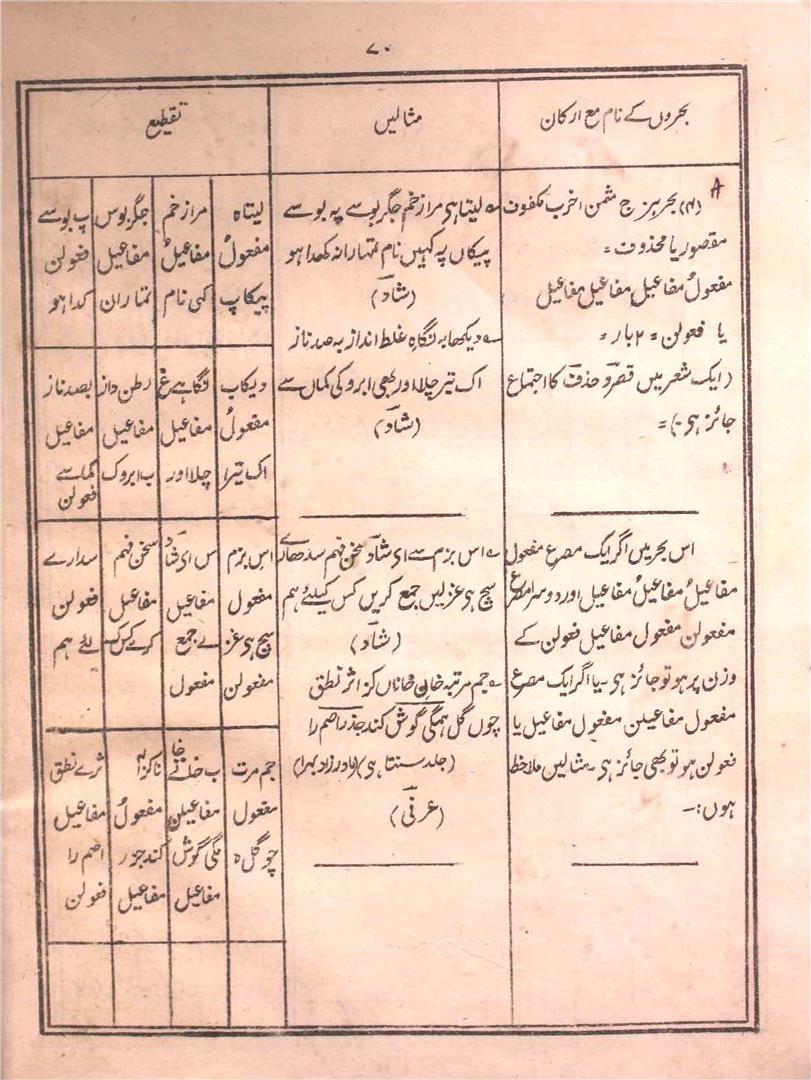 ۷۰
بحروں کے نام مع ارکان
مثالیں
تقطیع
(۴) بحر ہزج مثمن اخرب مکفوف
مقصور یا محذوف =
مفعولُ مفاعیل مفاعیل مفاعیل
یا فعولن = ۲ بار =
(ایک شعر میں قصر و حذف کا اجتماع
جائز ہی۔) =
اس بحر میں اگر ایک مصرع مفعول
مفاعیلُ مفاعیلُ مفاعیل اور دوسرا مصرع
مفعولن مفعول مفاعیل فعولن کے
وزن پر ہو تو جائز ہی۔ یا اگر ایک مصرع
مفعول مفاعیلن مفعول مفاعیل یا
فعولن ہو تو بھی جائز ہی۔ مثالیں ملاحظ
ہوں:۔
لیتا ہی مرا زخم جگر بوسے پہ بوسے
پیکاں پہ کہیں نام تمہارا نہ کھدا ہو
(شاد)
دیکھا بہ نگاہِ غلط انداز بہ صد ناز
اک تیر چلا اور بھی ابرو کی کماں سے
(شاد)
اس بزم سے ای شاد سخن فہم سدھارے
سچ ہی غزلیں جمع کریں کس کیلئے ہم
(شاد)
جم مرتبہ خانِ خاناں کز اثر نطق
چوں گل ہمگی گوش کند جذر اصم را
(جلد سنتا ہی) (مادر زاد بہرا)
(عرفی)
لیتاہ مرازخم جگربوس پ بوسے
مفعولُ مفاعیلُ مفاعیل فعولن
پیکاپ کہی نام تماران کداہو
دیکاب نگاہے غ رطن داز بصدناز
مفعولُ مفاعیل مفاعیل مفاعیل
اک تیرا چلا اور ب ابروک کماسے
فعولن
اس بزم س ای شاد سخن فہم سدارے
مفعول مفاعیل مفاعیل فعولن
سچ ہی غز لے جمع کرے کس لئے ہم
مفعولن مفعول
جم مرت ب خانے خا ناکزا ثرے نطق
مفعول مفاعیلن مفعولُ مفاعیل
چو گل ہ مگی گوش کند جزر اصم را
مفاعیل مفاعیل فعولن